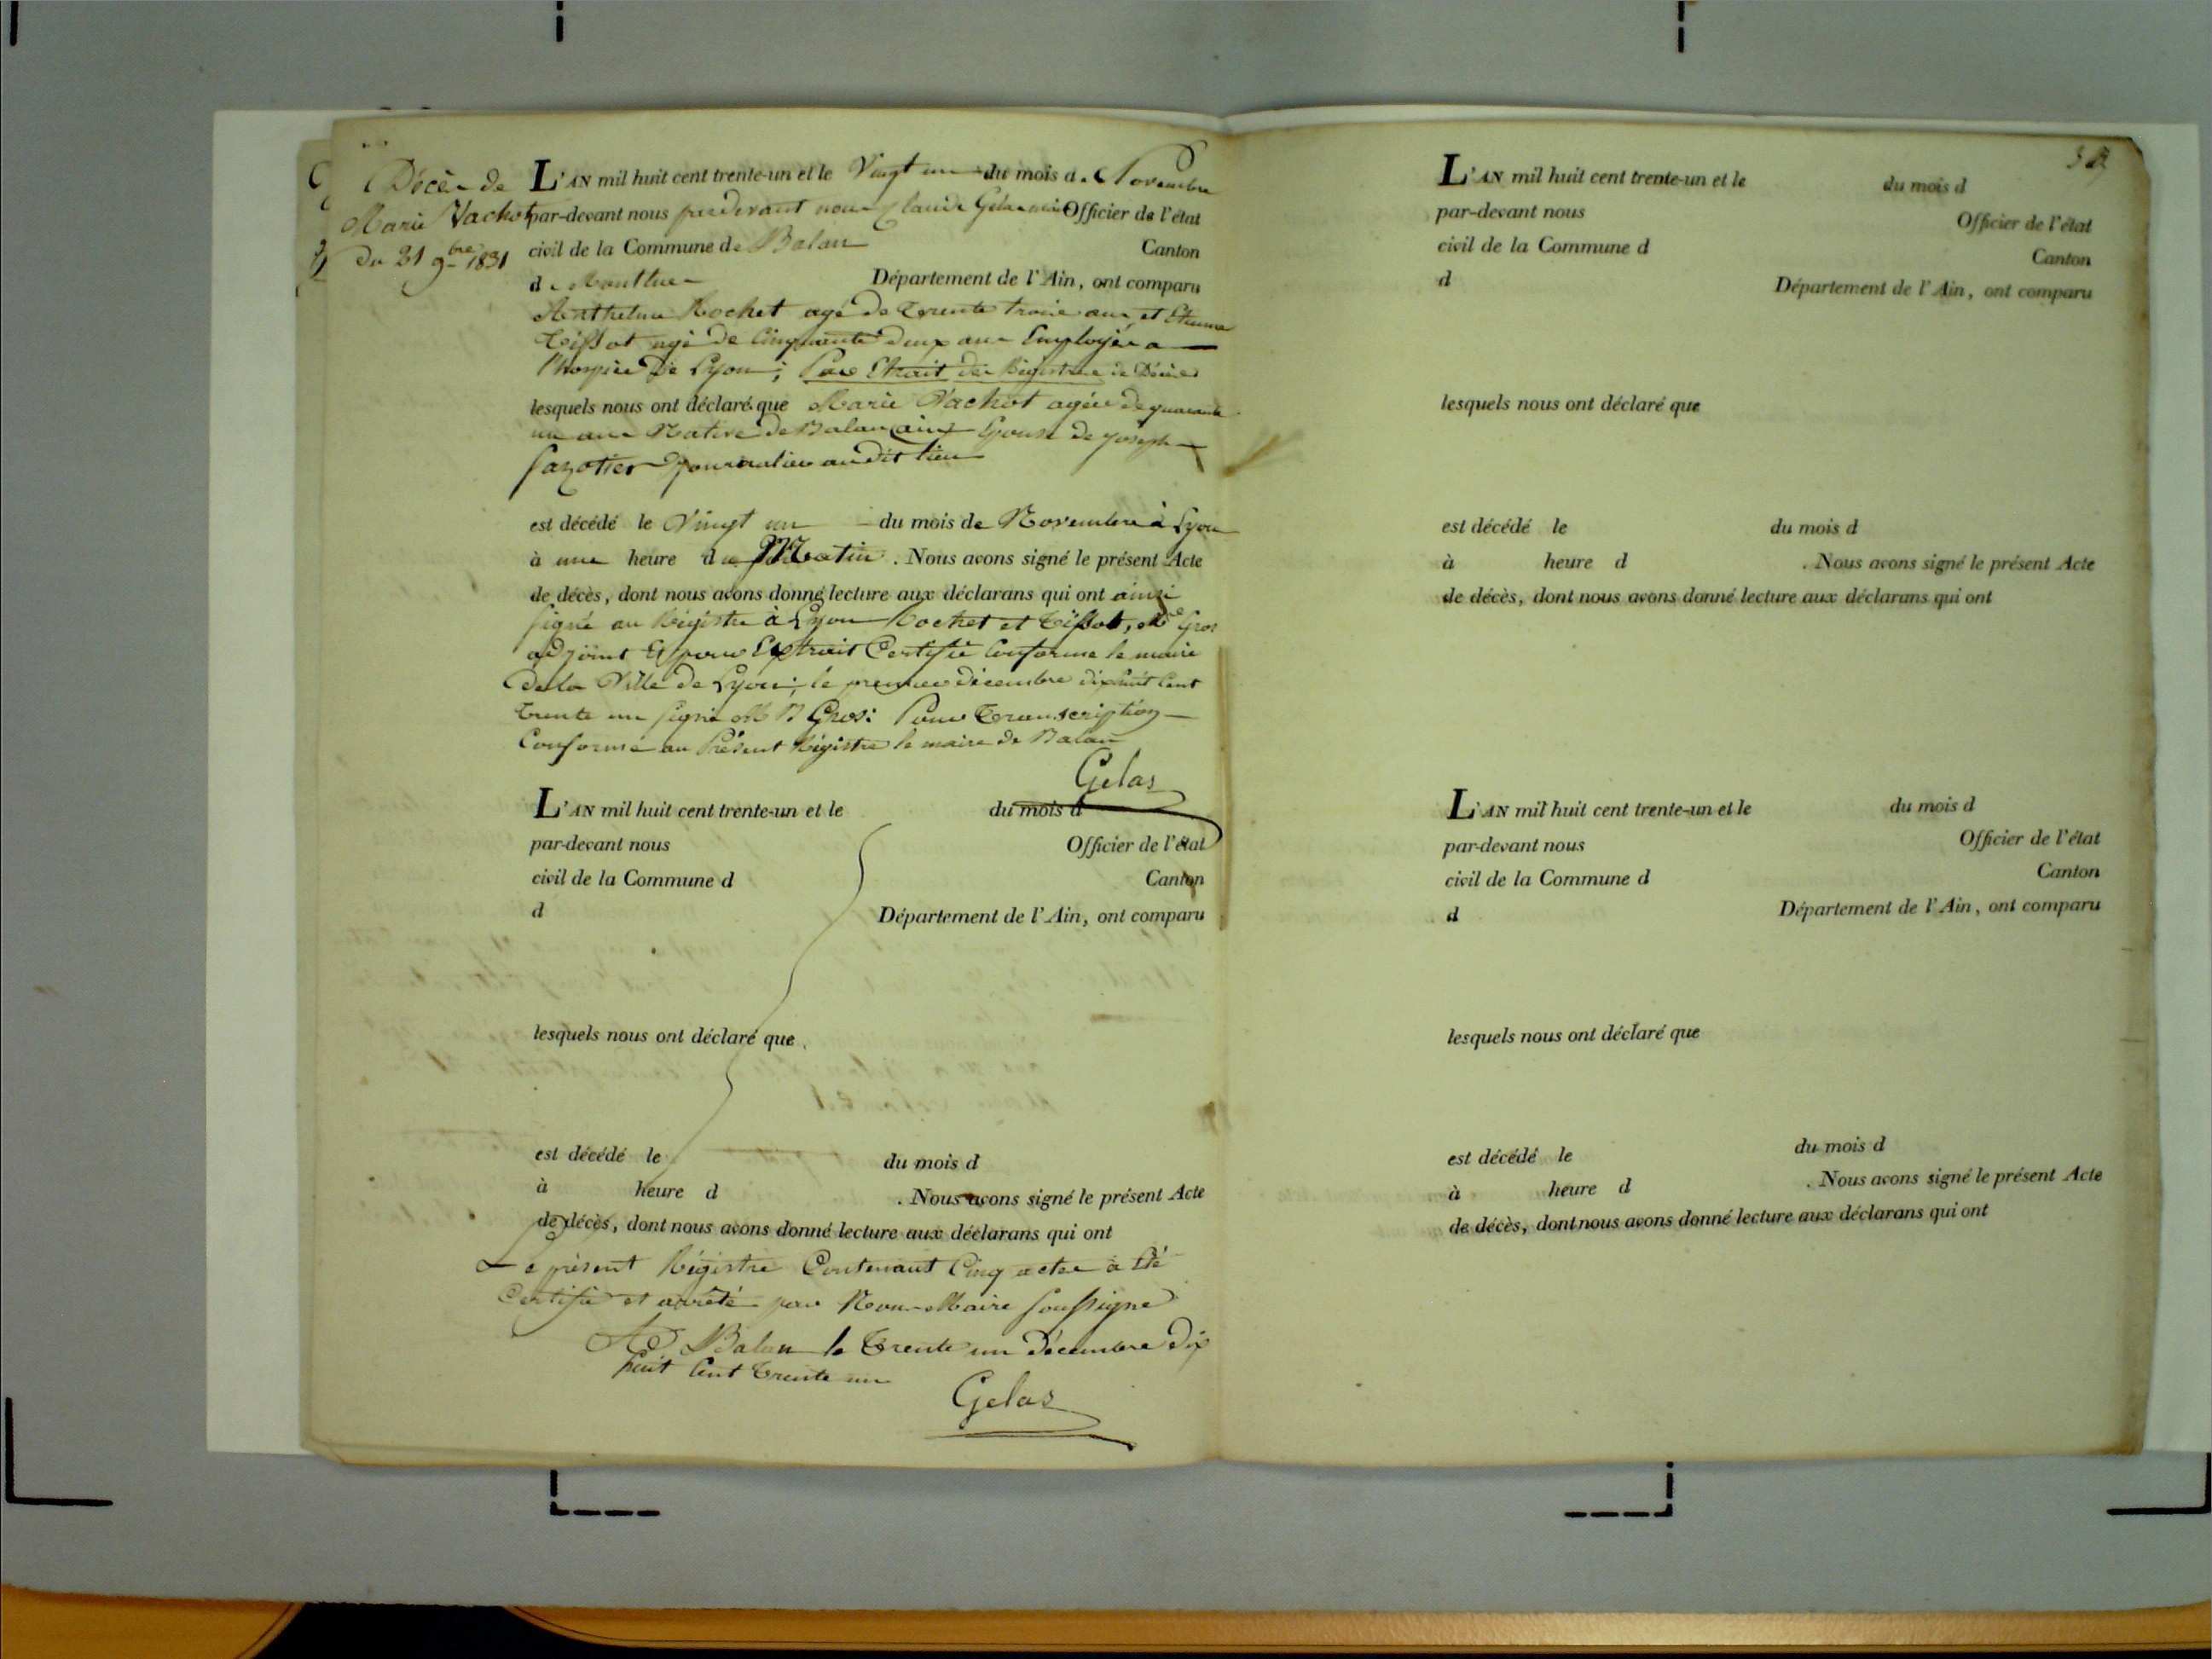 Décès de
Marie Vachot
du 21 9bre 1831
L'AN mil huit cent trente-un et le Vingt un du mois de Novembre
par-devant nous pardevant nous Claude Gelas maire Officier de l'état
civil de la Commune de Balan Canton
de Montluel Département de l'Ain, ont comparu
Anthelme Rochet agé de trente trois ans, et Etienne
Tissot agé de Cinquante deux ans Employés a
l'hospice De Lyon; Par Extrait des Régistres de Décès
lesquels nous ont déclaré que Marie Vachot agée de quarante
un ans Native de Balan (ain) Epouse de Joseph
Journalier au dit lieu
est décédé le Vingt un du mois de Novembre à Lyon
à une heure du Matin. Nous avons signé le présent Acte
de décès, dont nous avons donné lecture aux déclarans qui ont ainsi
signé au Régistre à Lyon Rochet et Tissot, Gros
adjoint Et pour Extrait Certifié Conforme le maire
De la Ville de Lyon, le premier décembre dixhuit Cent
trente un signé Gros: Pour Transcription
Conforme au Présent Régistre le maire de Balan
Gelas
L'AN mil huit cent trente-un et le du mois d
par-devant nous Officier de l'état
civil de la Commune d Canton
d Département de l'Ain, ont comparu
lesquels nous ont déclaré que
est décédé le du mois d
à heure d . Nous avons signé le présent Acte
de décès, dont nous avons donné lecture aux déclarans qui ont
Le présent Régistre Contenant Cinq actes a été
Certifié et arrêté par Nous Maire soussigné
A Balan le Trente un Décembre Dix
huit Cent Trente un
Gelas
L'AN mil huit cent trente-un et le du mois d
par-devant nous Officier de l'état
civil de la Commune d Canton
d Département de l'Ain, ont comparu
lesquels nous ont déclaré que
est décédé le du mois d
à heure d . Nous avons signé le présent Acte
de décès, dont nous avons donné lecture aux déclarans qui ont
L'AN mil huit cent trente-un et le du mois d
par-devant nous Officier de l'état
civil de la Commune d Canton
d Département de l'Ain, ont comparu
lesquels nous ont déclaré que
est décédé le du mois d
à heure d . Nous avons signé le présent Acte
de décès, dont nous avons donné lecture aux déclarans qui ont